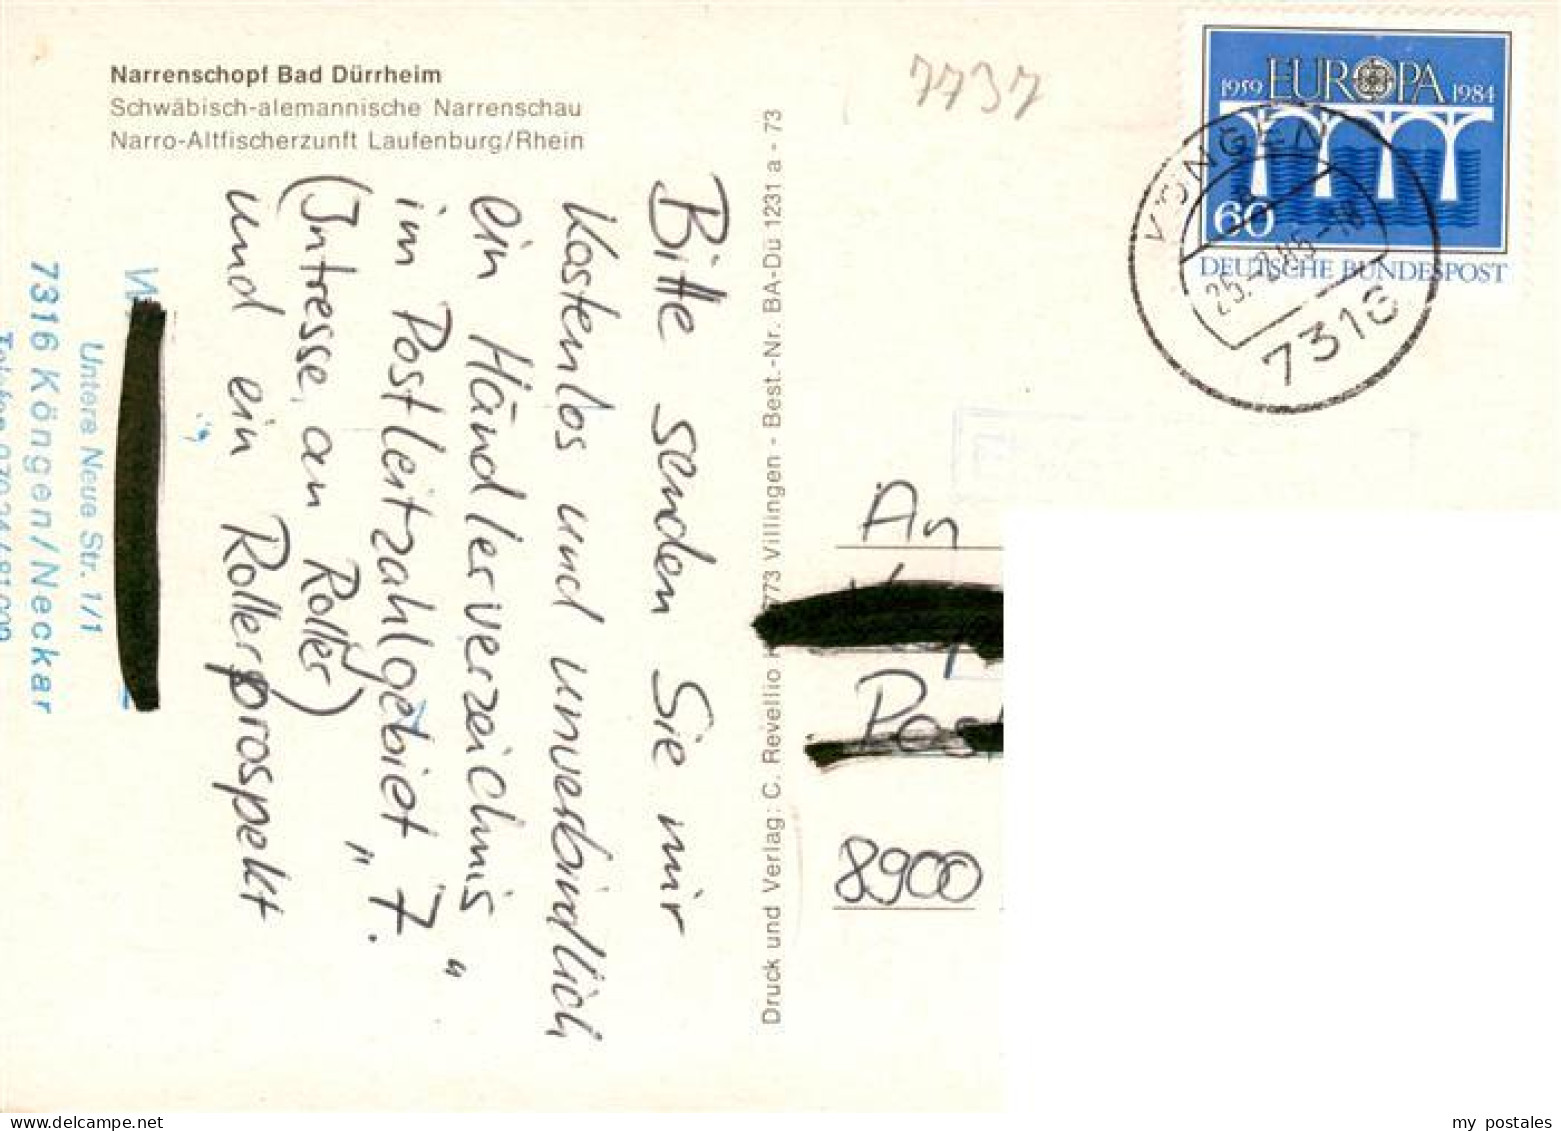 Narrenschopf Bad Dürrheim
Schwäbisch-alemannische Narrenschau
Narro-Altfischerzunft Laufenburg/Rhein
7737
1959 EUROPA 1984
60
DEUTSCHE BUNDESPOST
KÖNGEN
25.-2.85-18
7316
Bitte senden Sie mir
kostenlos und unverbindlich
ein Händlerverzeichnis "
im Postleitzahlgebiet " 7.
(Intresse, an Roller)
und ein Rollerprospekt
Untere Neue Str. 1/1
7316 Köngen/Neckar
Druck und Verlag: C. Revellio 773 Villingen - Best.-Nr. BA-Dü 1231 a - 73
An
Post
8900
my postales